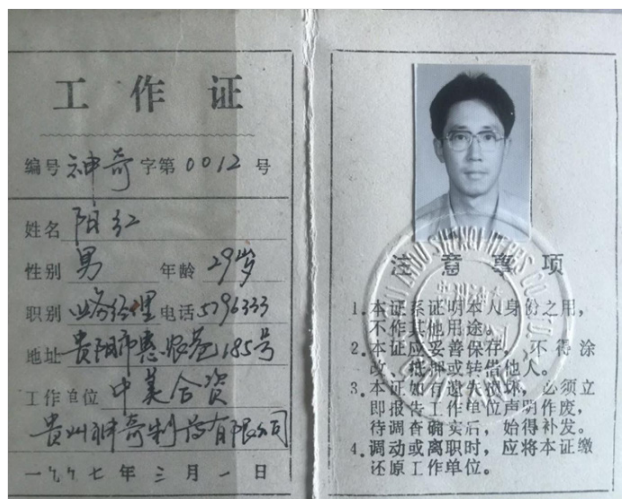 工作证
编号神奇字第0012号
姓名 阳红
性别 男 年龄 29岁
职别 业务经理 电话5796333
地址 贵阳市惠 巷185号
工作单位 中美合资
贵州神奇制药有限公司
一九九七年三月一日
注意事项
1.本证系证明本人身份之用,
不作其他用途。
2.本证应妥善保存,不得涂
改、抵押或转借他人。
3.本证如有遗失损坏,必须立
即报告工作单位声明作废,
待调查确实后,始得补发。
4.调动或离职时,应将本证缴
还原工作单位。